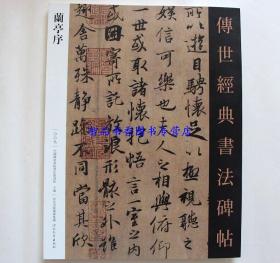 傳世經典書法碑帖
所以遊目騁懷足以極視聽之
娛信可樂也夫人之相與俯仰
一世或取諸懷抱悟言一室之內
或因寄所託放浪形骸之外雖
趣舍萬殊靜躁不同當其欣
蘭亭序